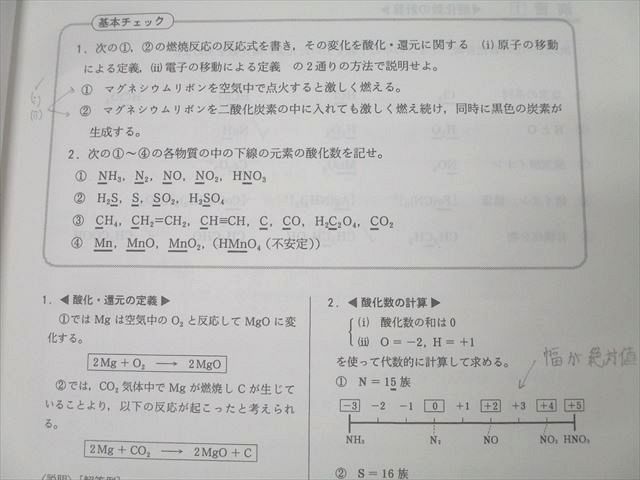 基本チェック
1．次の①，②の燃焼反応の反応式を書き，その変化を酸化・還元に関する (i)原子の移動
による定義，(ii)電子の移動による定義 の2通りの方法で説明せよ。
① マグネシウムリボンを空気中で点火すると激しく燃える。
② マグネシウムリボンを二酸化炭素の中に入れても激しく燃え続け，同時に黒色の炭素が
生成する。
(i)
(ii)
2．次の①〜④の各物質の中の下線の元素の酸化数を記せ。
① NH₃，N₂，NO，NO₂，HNO₃
② H₂S，S，SO₂，H₂SO₄
③ CH₄，CH₂=CH₂，CH≡CH，C，CO，H₂C₂O₄，CO₂
④ Mn，MnO，MnO₂，(HMnO₄（不安定))
1．◀ 酸化・還元の定義 ▶
①では Mg は空気中の O₂ と反応して MgO に変
化する。
2Mg + O₂ ⟶ 2MgO
②では，CO₂ 気体中で Mg が燃焼し C が生じて
いることより，以下の反応が起こったと考えられ
る。
2Mg + CO₂ ⟶ 2MgO + C
(説明) [解答例]
2．◀ 酸化数の計算 ▶
(i) 酸化数の和は 0
(ii) O = −2, H = +1
を使って代数的に計算して求める。
幅が絶対値
① N = 15 族
−3 −2 −1 0 +1 +2 +3 +4 +5
NH₃ N₂ NO NO₂ HNO₃
② S = 16 族